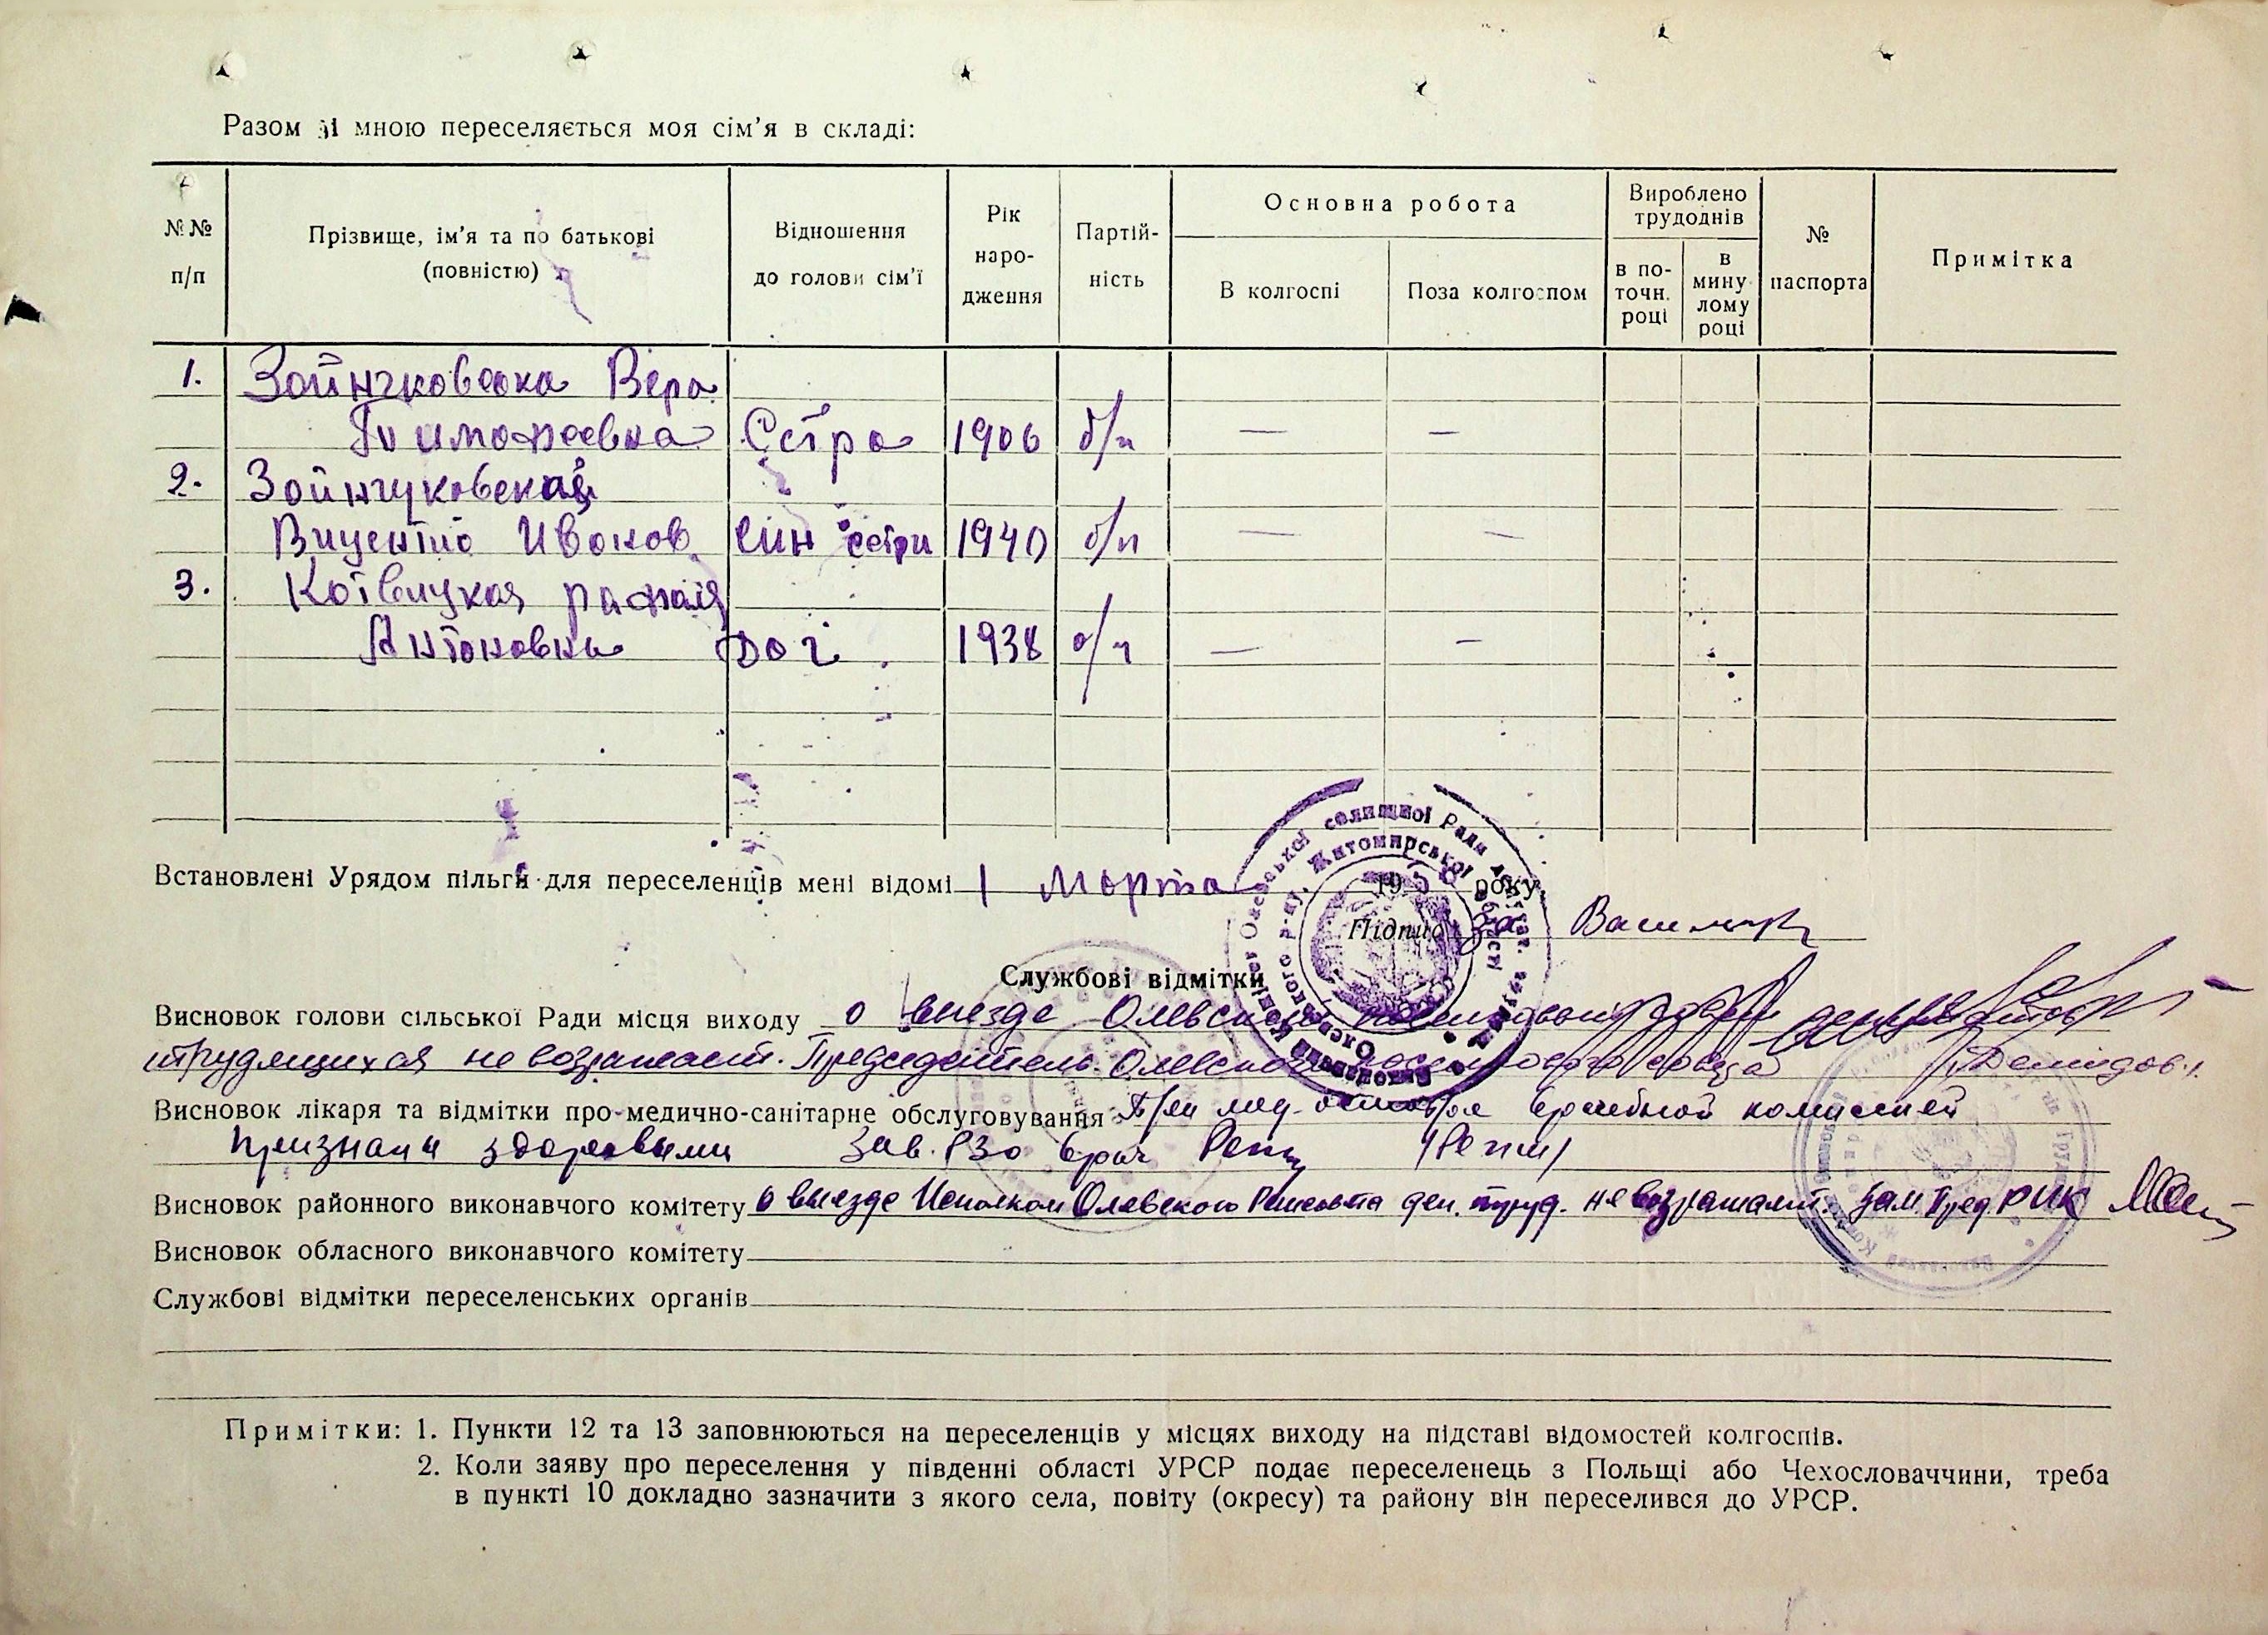 Разом зі мною переселяється моя сім'я в складі:
№№ п/п
Прізвище, ім'я та по батькові (повністю)
Відношення до голови сім'ї
Рік наро-дження
Партій-ність
Основна робота
В колгоспі
Поза колгоспом
Вироблено трудоднів
в по-точн. році
в мину-лому році
№ паспорта
Примітка
1. Зойнчковсока Вера
Тимофеевна Сетра 1906 б/п — —
2. Зойнчуковская
Вицентио Иванов син сетри 1940 б/п — —
3. Котвлуцкая рафаля
Антоновна Доч. 1938 б/п — —
Встановлені Урядом пільги для переселенців мені відомі 1 марта 1950 року
Підпис за
Службові відмітки
Висновок голови сільської Ради місця виходу о выезде Олевский
трудящихся не возражает. Председатель Олевского поселкового совета /Демидов/.
Висновок лікаря та відмітки про медично-санітарне обслуговування При мед. осмотре врачебной комиссией
признаны здоровыми Зав. РЗО врач
Висновок районного виконавчого комітету о выезде Исполком Олевского Райсовета деп. труд. не возражает. Зам. Пред. РИК
Висновок обласного виконавчого комітету
Службові відмітки переселенських органів
Примітки: 1. Пункти 12 та 13 заповнюються на переселенців у місцях виходу на підставі відомостей колгоспів.
2. Коли заяву про переселення у південні області УРСР подає переселенець з Польщі або Чехословаччини, треба
в пункті 10 докладно зазначити з якого села, повіту (окресу) та району він переселився до УРСР.